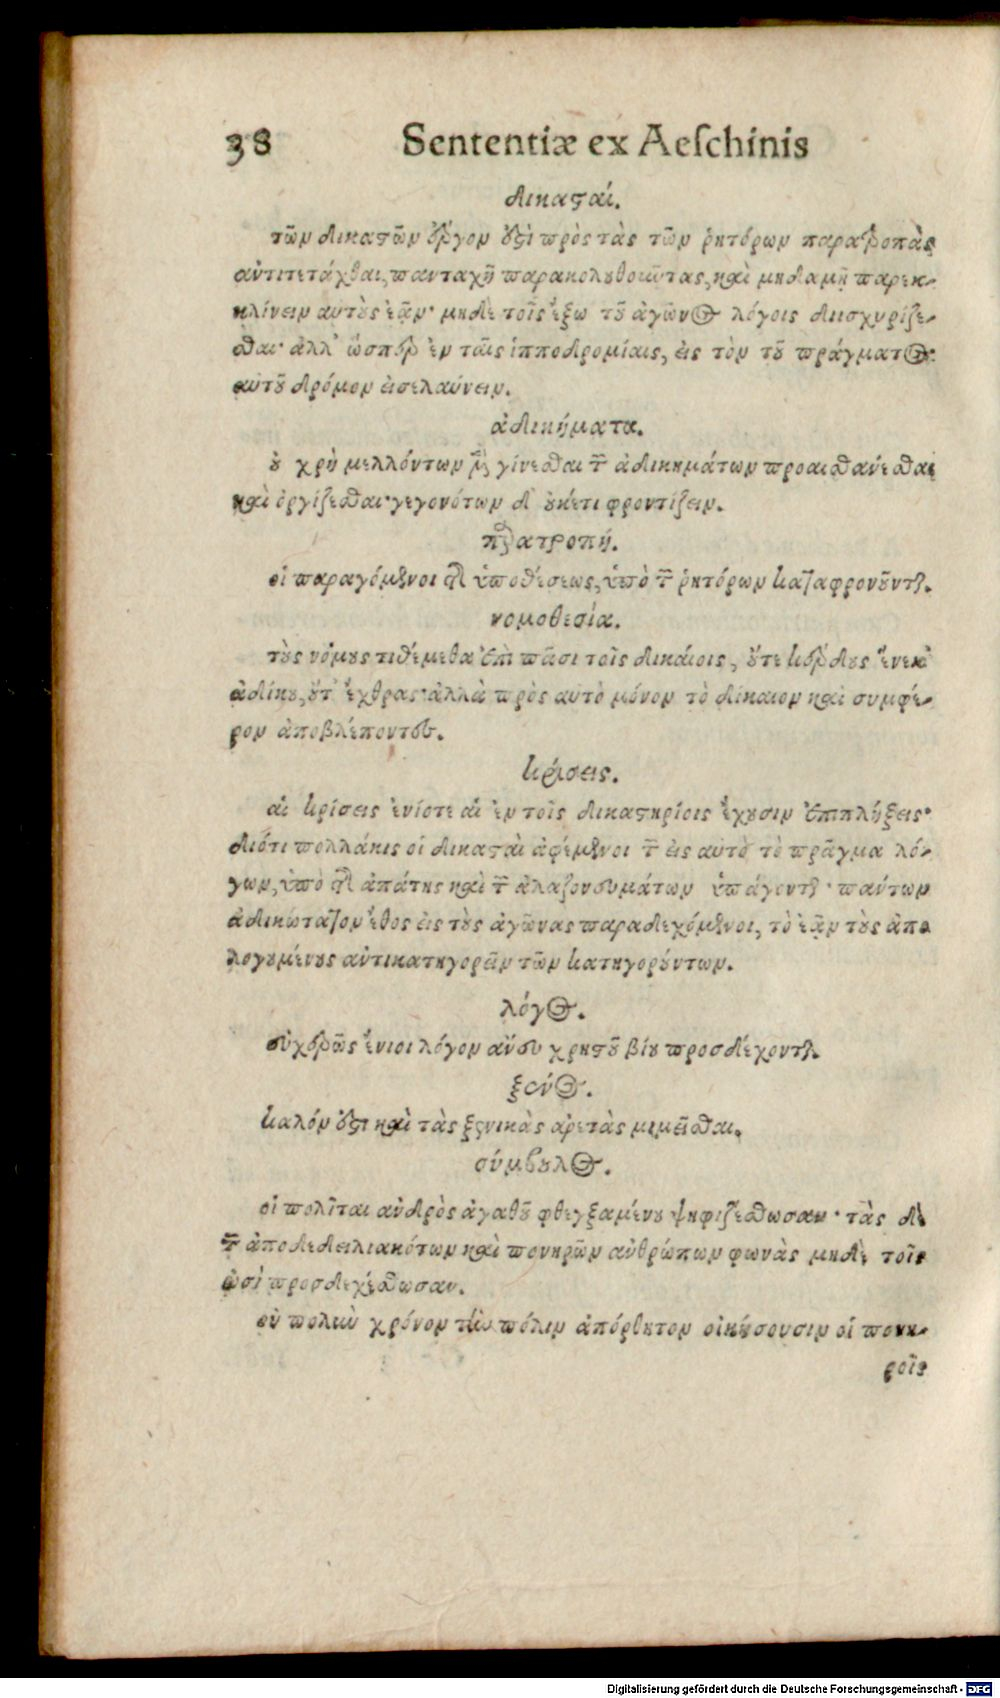 38 Sententiæ ex Aeſchinis
δικαςαί.
τῶν δικαςῶν ἔργον ἐςὶ πρὸς τὰς τῶν ῥητόρων παρατροπὰς
ἀντιτετάχθαι, πανταχῇ παρακολουθοιῶτας, καὶ μηδαμῇ παρεκ-
κλίνειν αυτοὺς ἐᾷν· μηδὲ τοῖς ἔξω τοῦ ἀγῶνος λόγοις διισχυρίζε-
σθαι· ἀλλ' ὥσπερ ἐν ταῖς ἱπποδρομίαις, εἰς τὸν τοῦ πράγματος
αὐτοῦ δρόμον εἰσελαύνειν.
ἀδικήματα.
οὐ χρὴ μελλόντων μὲν γίνεσθαι τῶν ἀδικημάτων προαισθανέσθαι
καὶ ὀργίζεσθαι· γεγονότων δ' οὐκέτι φροντίζειν.
παρατροπή.
οἱ παραγόμενοι τῆς ὑποθέσεως, ὑπὸ τῶν ῥητόρων καταφρονοῦνται.
νομοθεσία.
τοὺς νόμους τιθέμεθα ἐπὶ πᾶσι τοῖς δικαίοις, οὔτε κέρδους ἕνεκα
ἀδίκου, οὔτ' ἔχθρας· ἀλλὰ πρὸς αυτὸ μόνον τὸ δίκαιον καὶ συμφέ-
ρον ἀποβλέποντες.
κρίσεις.
αἱ κρίσεις ἐνίοτε αἱ ἐν τοῖς δικαςηρίοις ἔχουσιν ἐπιπλήξεις·
διότι πολλάκις οἱ δικαςαὶ ἀφέμενοι τῶν εἰς αυτὸ τὸ πρᾶγμα λό-
γων, ὑπὸ τῆς ἀπάτης καὶ τῶν ἀλαζονευμάτων ὑπάγονται· πάντων
ἀδικώτατον ἔθος εἰς τοὺς ἀγῶνας παραδεχόμενοι, τὸ ἐᾷν τοὺς ἀπο
λογουμένους ἀντικατηγορεῖν τῶν κατηγορούντων.
λόγος.
δυχερῶς ἔνιοι λόγον ἄνευ χρηςοῦ βίου προσδέχονται.
ξένος.
καλόν ἐςι καὶ τὰς ξενικὰς ἀρετὰς μιμεῖσθαι.
σύμβουλος.
οἱ πολῖται ἀνδρὸς ἀγαθοῦ φθεγξαμένου ψηφιζέσθωσαν· τὰς δὲ
τῶν ἀποδεδειλιακότων καὶ πονηρῶν ἀνθρώπων φωνὰς μηδὲ τοῖς
ὠσὶ προσδεχέσθωσαν.
οὐ πολιω χρόνον τιὼ πόλιν ἀπόρθητον οἰκήσουσιν οἱ πονη-
ροῖς
Digitalisierung gefördert durch die Deutsche Forschungsgemeinschaft - DFG